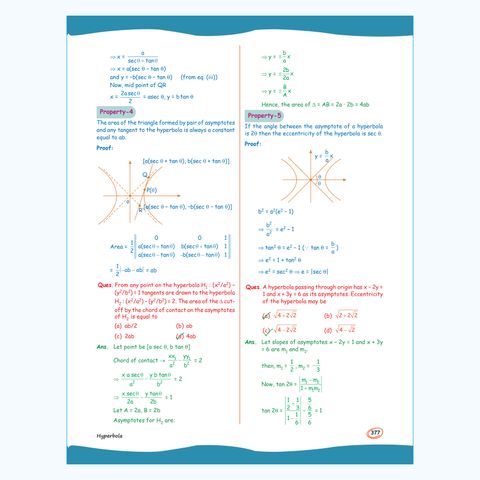 ⇒ x = a / (sec θ − tan θ)
⇒ x = a(sec θ − tan θ)
and y = −b(sec θ − tan θ) (from eq. (iii))
Now, mid point of QR
x = 2a sec θ / 2 = a sec θ, y = b tan θ
Property-4
The area of the triangle formed by pair of asymptotes
and any tangent to the hyperbola is always a constant
equal to ab.
Proof:
[a(sec θ + tan θ), b(sec θ + tan θ)]
Q
P(θ)
R
[a(sec θ − tan θ), −b(sec θ − tan θ)]
Area = 1/2
0 0 1
a(sec θ + tan θ) b(sec θ + tan θ) 1
a(sec θ − tan θ) −b(sec θ − tan θ) 1
= 1/2 |−ab − ab| = ab
Ques. From any point on the hyperbola H₁ : (x²/a²) −
(y²/b²) = 1 tangents are drawn to the hyperbola
H₂ : (x²/a²) − (y²/b²) = 2. The area of the Δ cut-
off by the chord of contact on the asymptotes
of H₂ is equal to
(a) ab/2 (b) ab
(c) 2ab (d) 4ab
Ans. Let point be [a sec θ, b tan θ]
Chord of contact → xx₁/a² − yy₁/b² = 2
⇒ x a sec θ / a² − y b tan θ / b² = 2
⇒ x sec θ / 2a − y tan θ / 2b = 1
Let A = 2a, B = 2b
Asymptotes for H₂ are:
⇒ y = ± b/a x
⇒ y = ± 2b/2a x
⇒ y = ± B/A x
Hence, the area of Δ = AB = 2a · 2b = 4ab
Property-5
If the angle between the asymptote of a hyperbola
is 2θ then the eccentricity of the hyperbola is sec θ.
Proof:
y = b/a x
θ
θ
b² = a²(e² − 1)
⇒ b²/a² = e² − 1
⇒ tan² θ = e² − 1 (∵ tan θ = b/a)
⇒ e² = 1 + tan² θ
⇒ e² = sec² θ ⇒ e = |sec θ|
Ques. A hyperbola passing through origin has x − 2y =
1 and x + 3y = 6 as its asymptotes. Eccentricity
of the hyperbola may be
(a) √(4 + 2√2) (b) √(2 + 2√2)
(c) √(4 − 2√2) (d) √(4 − √2)
Ans. Let slopes of asymptotes x − 2y = 1 and x + 3y
= 6 are m₁ and m₂.
then, m₁ = 1/2, m₂ = −1/3
Now, tan 2θ = |(m₁ − m₂)/(1 + m₁m₂)|
tan 2θ = |(1/2 + 1/3)/(1 − 1/6)| = (5/6)/(5/6) = 1
Hyperbola
377